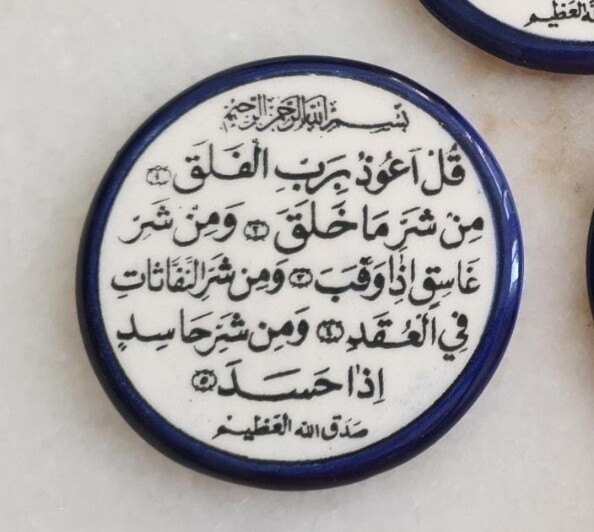 بسم الله الرحمن الرحيم
قُلْ اَعُوذُ بِرَبِّ الْفَلَقِ ١
مِنْ شَرِّ مَا خَلَقَ ٢ وَمِنْ شَرِّ
غَاسِقٍ اِذَا وَقَبَ ٣ وَمِنْ شَرِّ النَّفَّاثَاتِ
فِي الْعُقَدِ ٤ وَمِنْ شَرِّ حَاسِدٍ
اِذَا حَسَدَ ٥
صدق الله العظيم
الله العظيم